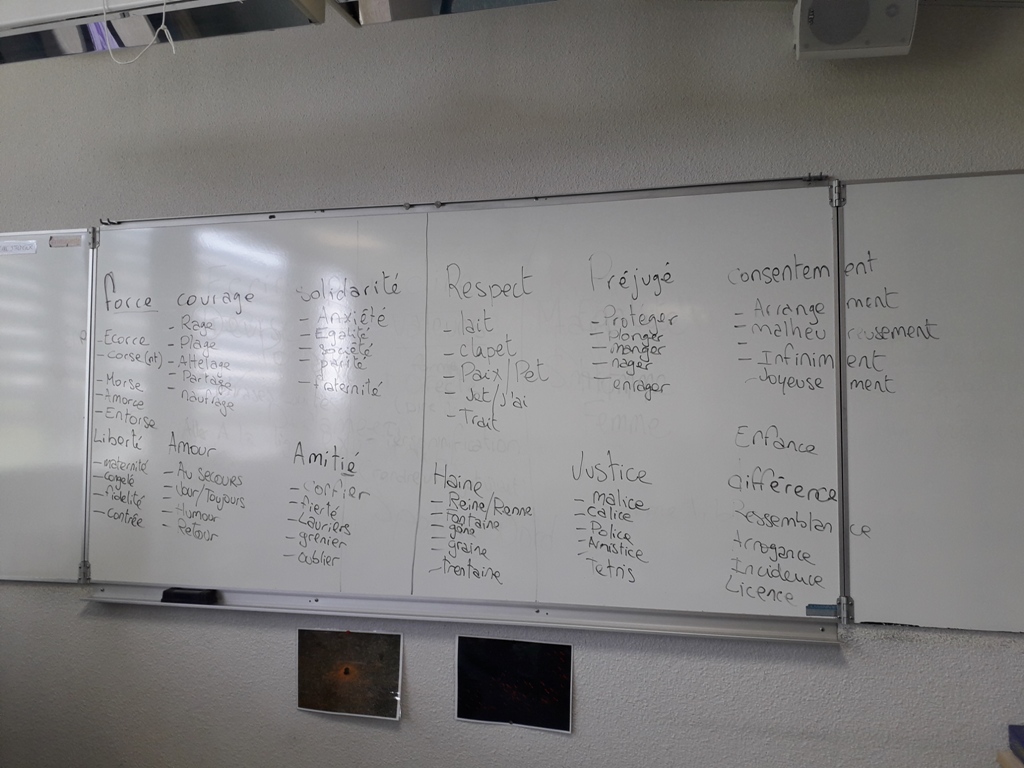 Force
- Ecorce
- corse(nt)
- Morse
- Amorce
- Entorse
courage
- Rage
- Plage
- Attelage
- Partage
- naufrage
Solidarité
- Anxiété
- Egalité
- Société
- parité
- fraternité
Respect
- lait
- clapet
- Paix/Pet
- Jet/j'ai
- Trait
Préjugé
- Protéger
- Plonger
- manger
- nager
- enrager
Consentement
- Arrangement
- malheureusement
- Infiniment
- Joyeusement
Liberté
- maternité
- congelé
- fidelité
- contrée
Amour
- Au secours
- Jour/Toujours
- Humour
- Retour
Amitié
- fierté
- Lauriers
- grenier
- oublier
Haine
- Reine/Renne
- Fontaine
- gène
- graine
- trentaine
Justice
- malice
- calice
- Police
- Armistice
- Tetris
Enfance
différence
ressemblance
Arrogance
Incidence
Licence